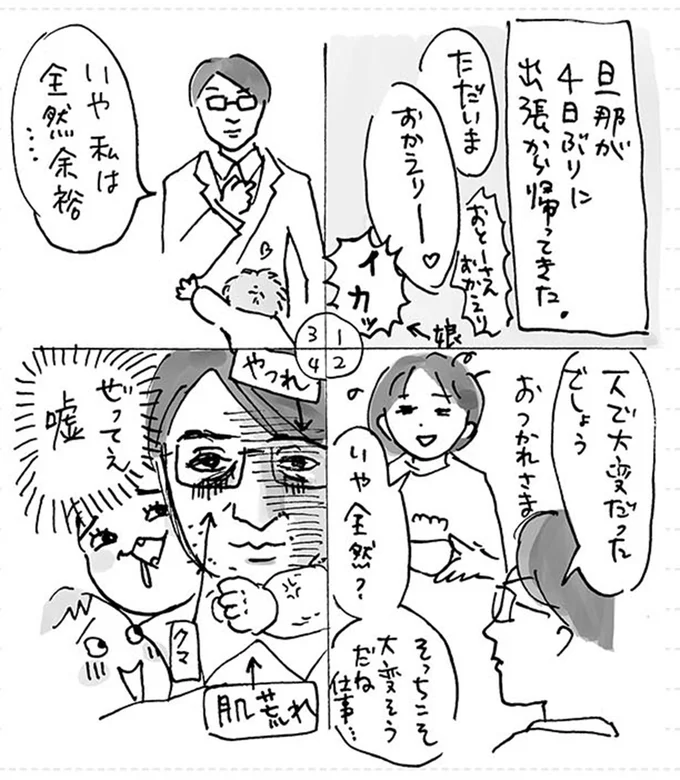 旦那が
4日ぶりに
出張から帰ってきた。
ただいま
おかえりー♡
おとーさん
おかえり
イカッ
娘
1
2
3
4
一人で大変だった
でしょう
おつかれさま
いや全然?
そっちこそ
大変そう
だね
仕事…
いや私は
全然余裕
…
やつれ
ぜってえ
嘘
クマ
肌荒れ